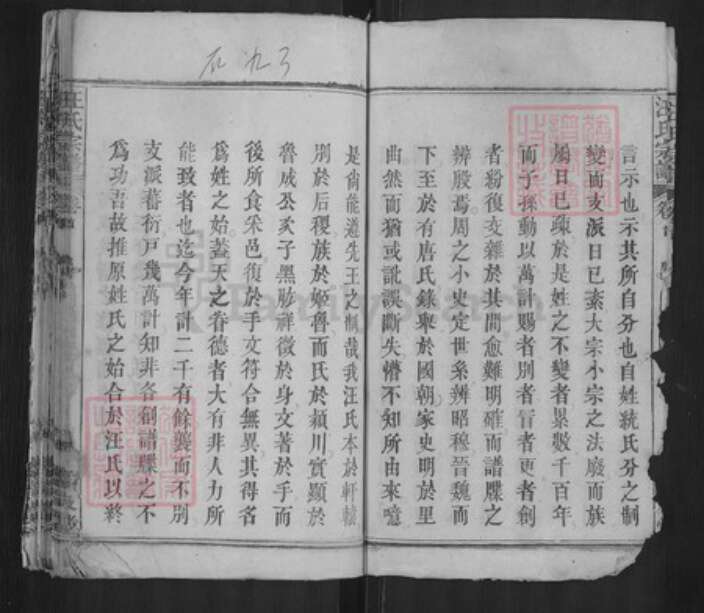 言示也示其所自分也自姓統氏分之制
變而支派日已紊大宗小宗之法廢而族
屬日已疎於是姓之不變者累數千百年
而子孫動以萬計賜者別者冒者更者創
者紛復交雜於其間愈難明確而譜牒之
辨殷焉周之小史定世系辨昭穆晉魏而
下至於有唐氏錄聚於國朝家史明於里
曲然而猶或訛誤斷失懵不知所由來噫
是尙能遵先王之制哉我汪氏本於軒轅
別於后稷族於姬魯而氏於潁川實顯於
魯成公支子黑肱祥徵於身文著於手而
後所食采邑復於手文符合無異其得名
爲姓之始蓋天之眷德者大有非人力所
能致者也迄今年計二千有餘襲而不別
支派蕃衍戸幾萬計知非各創譜牒之不
爲功吾故推原姓氏之始合於汪氏以終
汪氏宗譜
FamilySearch